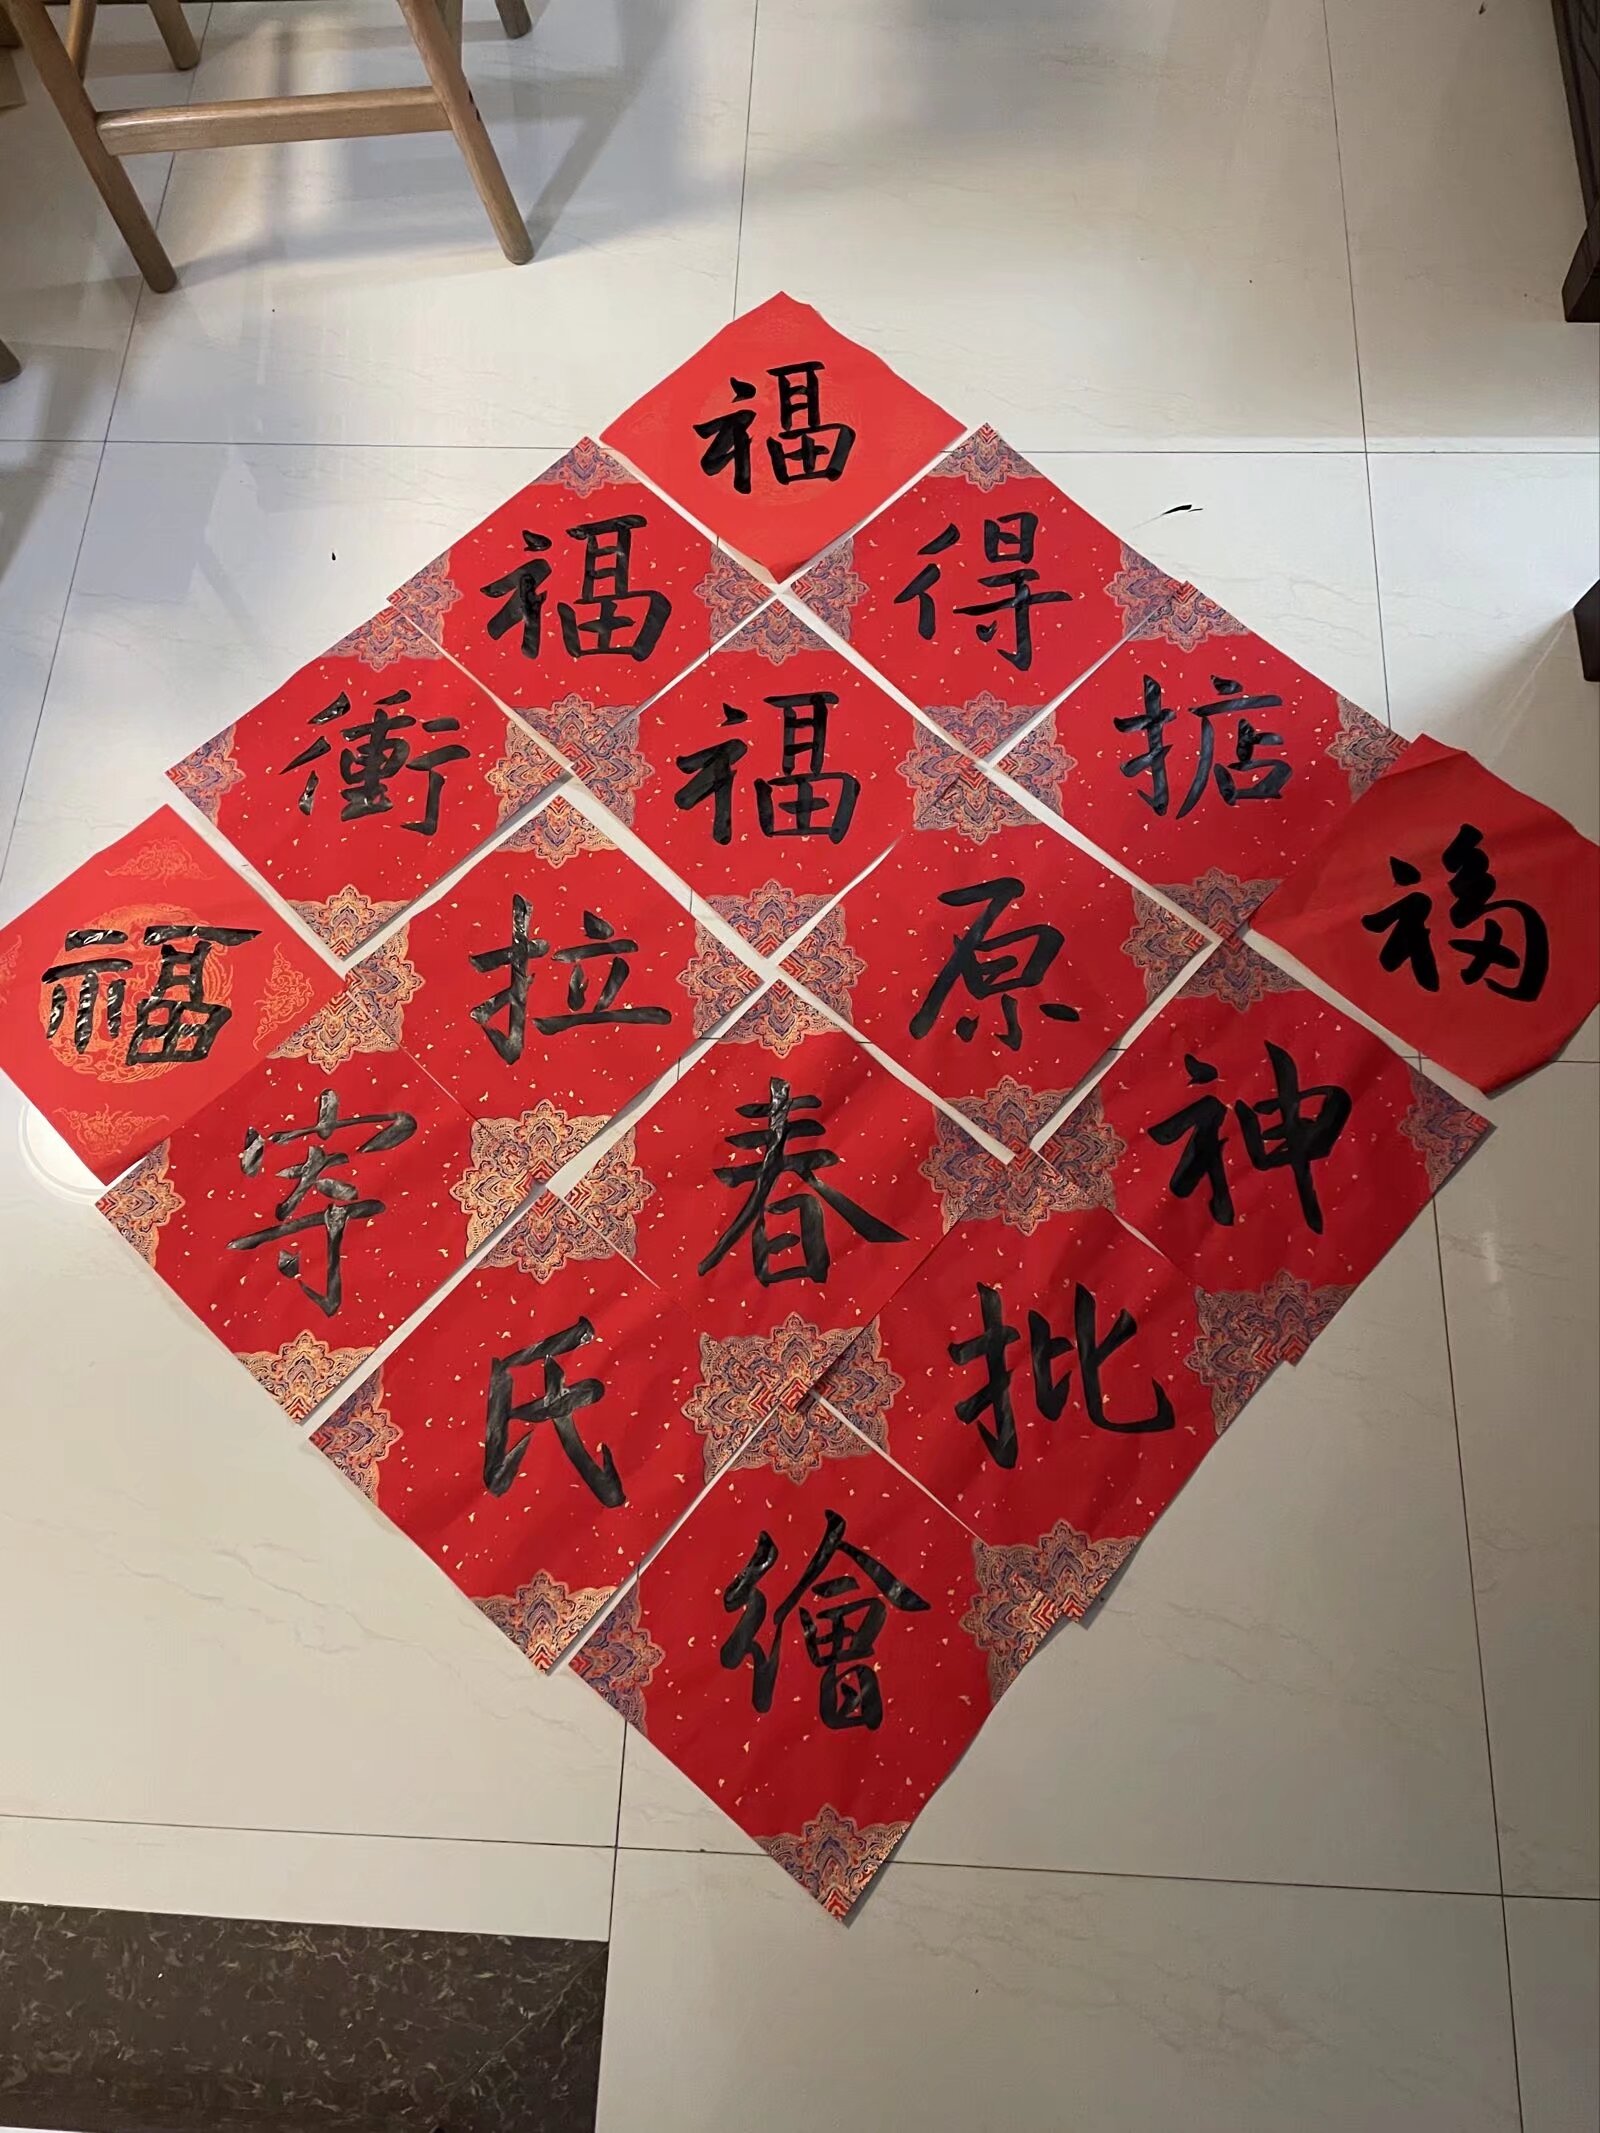 福
福 得
衝 福 掂
福 拉 原 福
寄 春 神
氏 批
繪